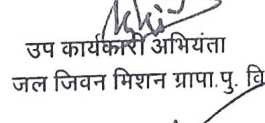 उप कार्यकारी अभियंता
जल जिवन मिशन ग्रापा. पु. वि